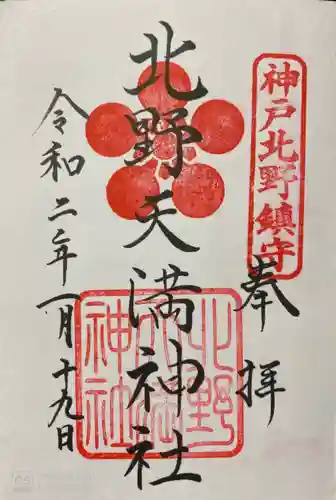 神戸北野鎮守
奉拝
北野天満神社
北野天満神社
令和二年一月十九日